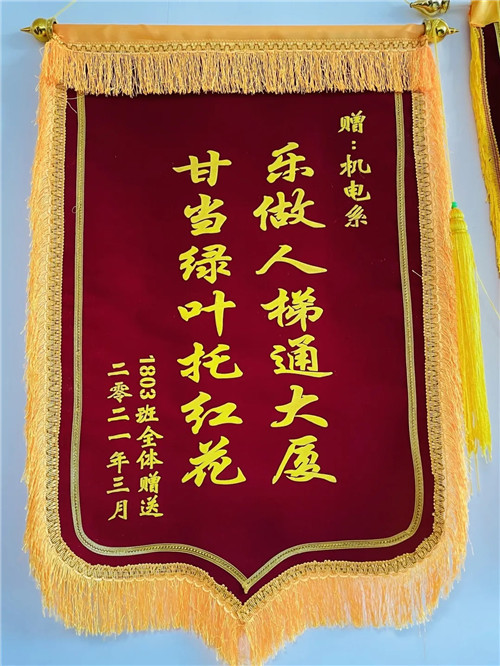 赠:机电系
乐做人梯通大厦
甘当绿叶托红花
1803班全体赠送
二零二一年三月